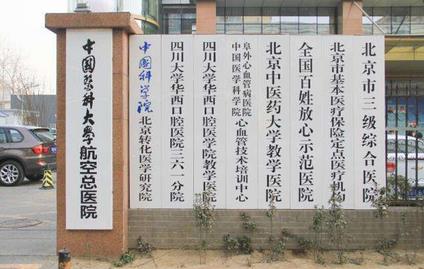 中国醫科大學航空总医院
中国科学院北京转化医学研究院
四川大学华西口腔医院三六一分院
四川大学华西口腔医学院教学医院
中国医学科学院
阜外心血管病医院
心血管技术培训中心
北京中医药大学教学医院
全国百姓放心示范医院
北京市基本医疗保险定点医疗机构
北京市三级综合医院